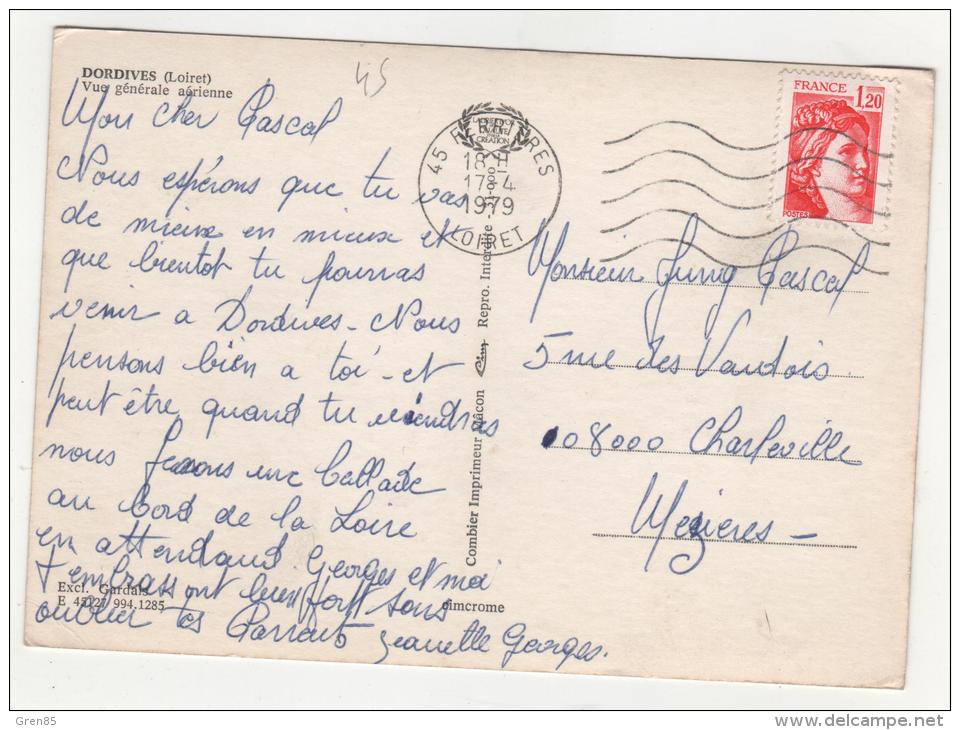 DORDIVES (Loiret)
Vue générale aérienne
45
Mon cher Pascal
Nous espérons que tu vas
de mieux en mieux et
que bientot tu pourras
venir a Dordives - Nous
pensons bien a toi - et
peut être quand tu viendras
nous ferons une ballade
au bord de la Loire
en attendand Georges et moi
t'embrassont bien fort sans
oublier tes Parrents Jeanette Georges.
Excl. Gardais
E 45127 994.1285
cimcrome
Combier Imprimeur Mâcon Cim Repro. Interdite
45 FERRIERES
18 H
17-4
1979
LOIRET
CREATION
FRANCE 1,20
POSTES
Monsieur Jung Pascal
5 rue des Vaudois
08000 Charleville
Mezieres -
Gren85
www.delcampe.net